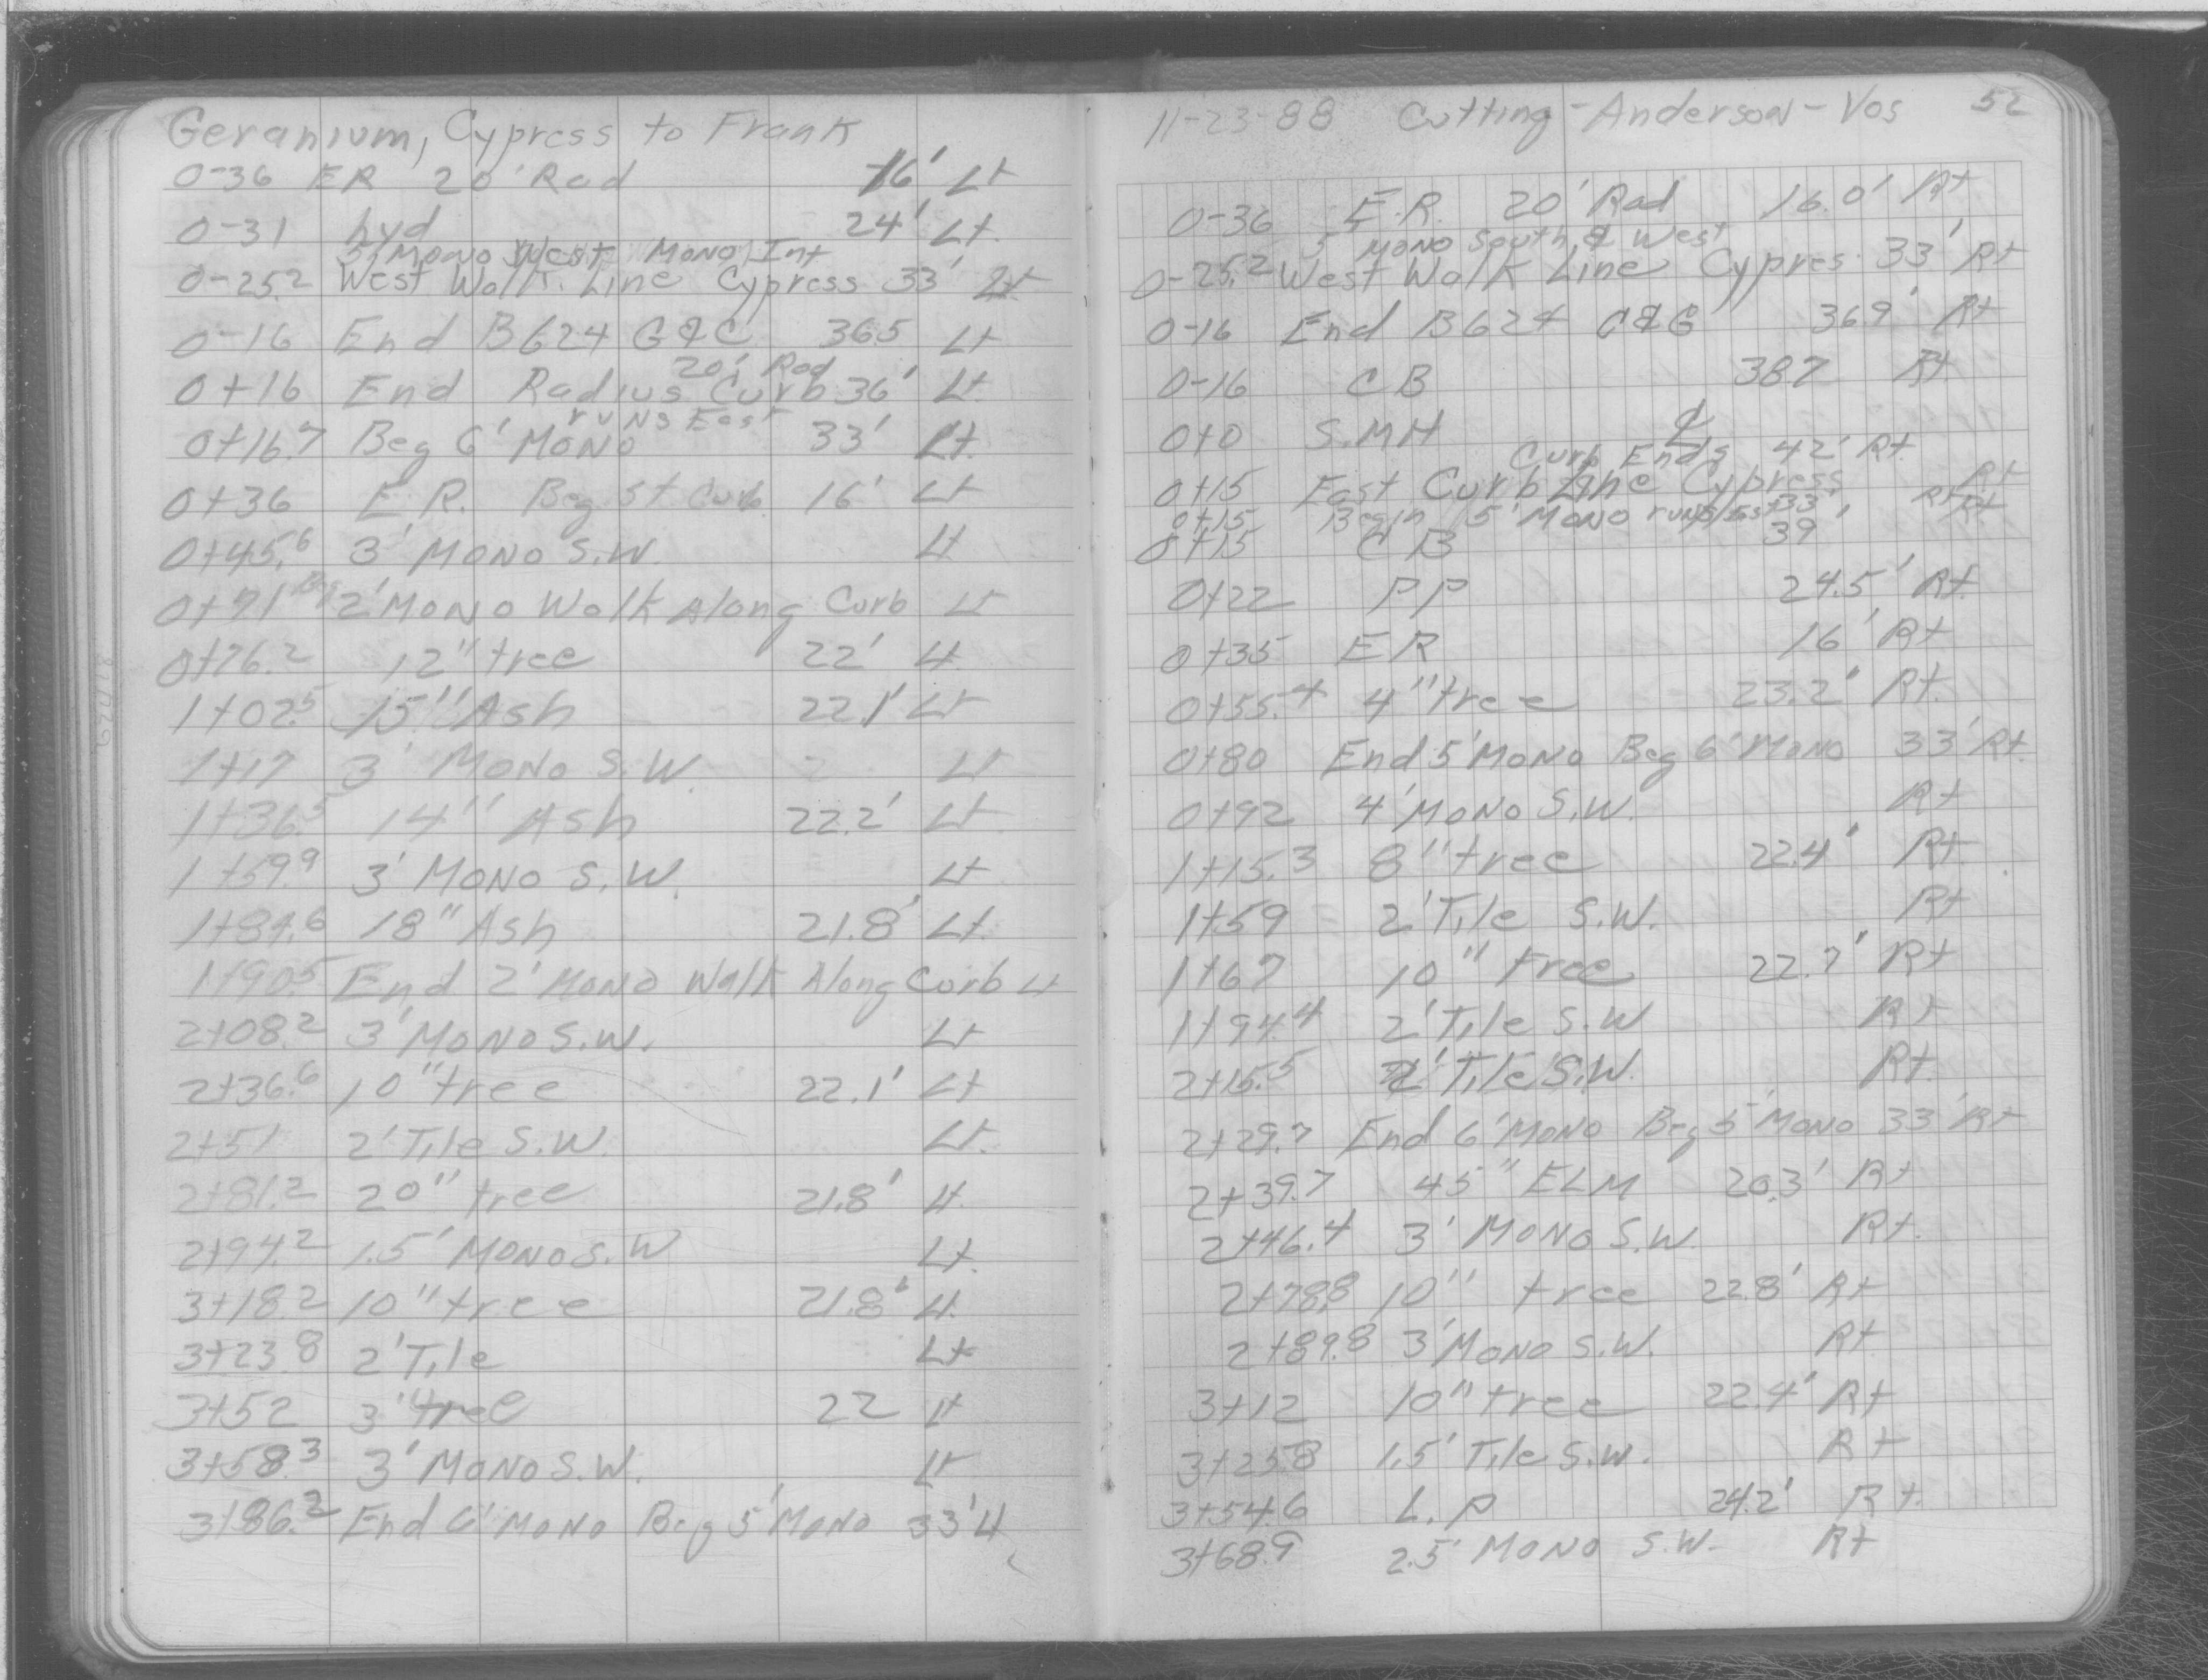 Geranium, Cypress to Frank
0-36 ER 20' Rad 16' Lt
0-31 hyd 24' Lt.
5' Mono West Mono Int
0-25.2 West Walk Line Cypress 33' Lt
0-16 End B624 G&C 36.5 Lt
20' Rad
0+16 End Radius Curb 36' Lt.
runs East
0+16.7 Beg 6' Mono 33' Lt.
0+36 E.R. Beg St Curb 16' Lt
0+45.6 3' Mono S.W. Lt
0+71 Beg 2' Mono Walk Along Curb Lt
0+76.2 12" tree 22' Lt
1+02.5 15" Ash 22.1' Lt
1+17 3' Mono S.W. Lt
1+36.5 14" Ash 22.2' Lt
1+59.9 3' Mono S.W. Lt
1+84.6 18" Ash 21.8' Lt
1+90.5 End 2' Mono Walk Along Curb Lt
2+08.2 3' Mono S.W. Lt
2+36.6 10" tree 22.1' Lt
2+51 2' Tile S.W. Lt.
2+81.2 20" tree 21.8' Lt
2+94.2 1.5' Mono S.W Lt
3+18.2 10" tree 21.8' Lt
3+23.8 2' Tile Lt
3+52 3' tree 22 Lt
3+58.3 3' Mono S.W. Lt
3+86.2 End 6' Mono Beg 5' Mono 33' Lt
11-23-88 Cutting - Anderson - Vos 52
0-36 E.R. 20' Rad 16.0' Rt
5' Mono South & West
0-25.2 West Walk Line Cypres. 33' Rt
0-16 End B624 C&G 36.9' Rt
0-16 CB 38.7 Rt
0+0 S.MH ℄
Curb Ends 42' Rt.
0+15 East Curb Line Cypress Rt
0+15 Begin 5' Mono runs East 33' Rt
0+15 CB 39' Rt
0+22 PP 24.5' Rt
0+35 ER 16' Rt
0+55.4 4" tree 23.2' Rt.
0+80 End 5' Mono Beg 6' Mono 33' Rt.
0+92 4' Mono S.W. Rt
1+15.3 8" tree 22.4' Rt
1+59 2' Tile S.W. Rt
1+67 10" tree 22.7' Rt
1+94.4 2' Tile S.W Rt
2+15.5 2' Tile S.W. Rt.
2+29.7 End 6' Mono Beg 5' Mono 33' Rt
2+39.7 45" ELM 20.3' Rt
2+46.4 3' Mono S.W. Rt.
2+78.8 10" tree 22.8' Rt
2+89.8 3' Mono S.W. Rt
3+12 10" tree 22.4' Rt
3+25.8 1.5' Tile S.W. Rt
3+54.6 L.P 24.2' Rt.
3+68.9 2.5' Mono S.W. Rt